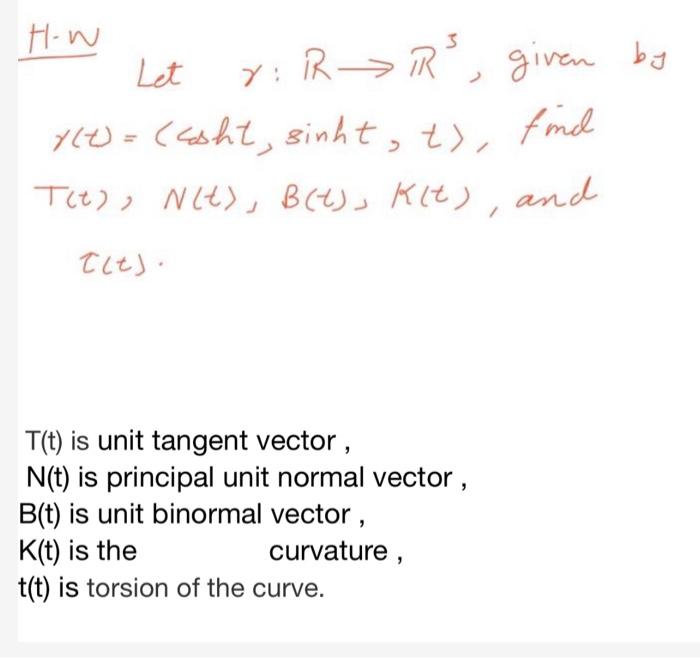 H-W
Let γ: ℝ → ℝ³, given by
γ(t) = (cosht, sinht, t), find
T(t), N(t), B(t), K(t), and
τ(t).
T(t) is unit tangent vector ,
N(t) is principal unit normal vector ,
B(t) is unit binormal vector ,
K(t) is the curvature ,
t(t) is torsion of the curve.